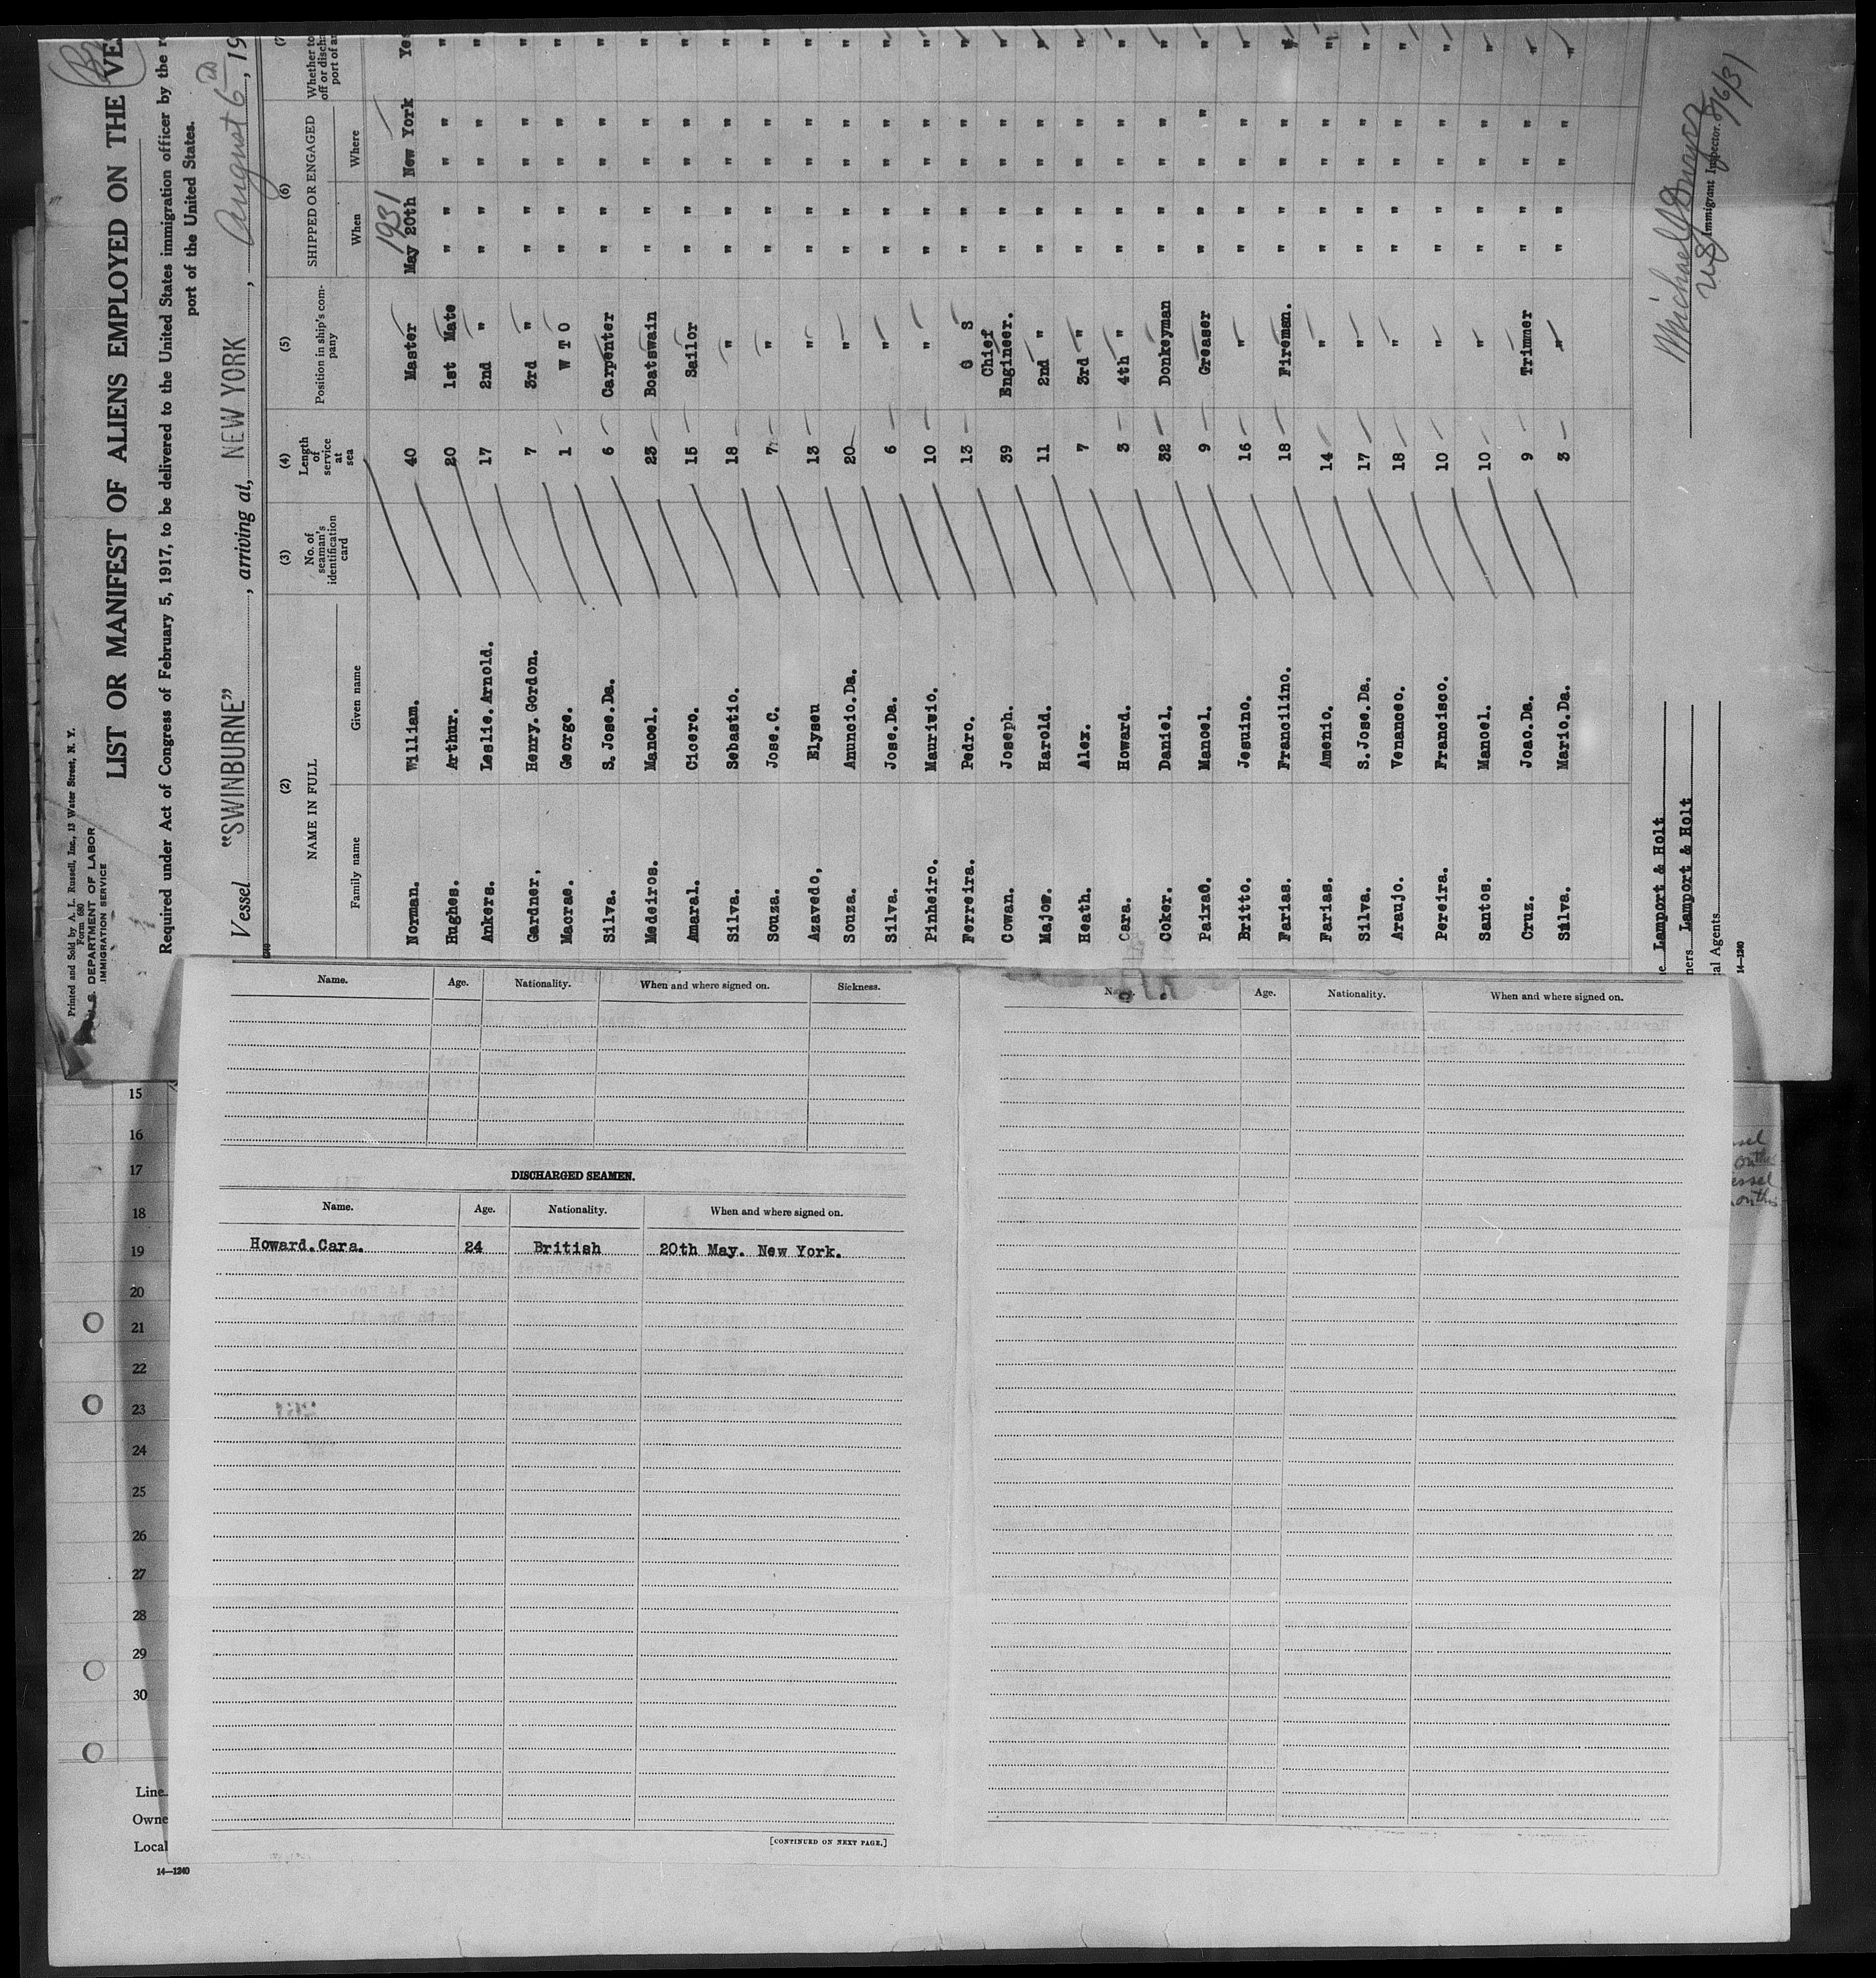 Printed and Sold by A. L. Russell, Inc., 13 Water Street, N. Y.
Form 680
U. S. DEPARTMENT OF LABOR
IMMIGRATION SERVICE
LIST OR MANIFEST OF ALIENS EMPLOYED ON THE VES
Required under Act of Congress of February 5, 1917, to be delivered to the United States immigration officer by the r
port of the United States.
Vessel "SWINBURNE", arriving at, NEW YORK, August 6th, 19
(2) (3) (4) (5) (6)
NAME IN FULL No. of seaman's identification card Length of service at sea Position in ship's company SHIPPED OR ENGAGED Whether to
off or disch
port of ar
Family name Given name When Where
1931
Norman. William. 40 Master May 20th New York Yes
Hughes. Arthur. 20 1st Mate " " " " "
Ankers. Leslie. Arnold. 17 2nd " " " " " "
Gardner, Henry. Gordon. 7 3rd " " " " " "
Macrae. George. 1 W T O " " " " "
Silva. S. Jose. Da. 6 Carpenter " " " " "
Medeiros. Manoel. 23 Boatswain " " " " "
Amaral. Cicero. 15 Sailor " " " " "
Silva. Sebastio. 18 " " " " " "
Souza. Jose. C. 7 " " " " " "
Azavedo, Elyseu 13 " " " " " "
Souza. Anuncio. Da. 20 " " " " " "
Silva. Jose. Da. 6 " " " " " "
Pinheiro. Mauricio. 10 " " " " " "
Ferreira. Pedro. 13 G S " " " " "
Cowan. Joseph. 39 Chief Engineer. " " " " "
Major. Harold. 11 2nd " " " " " "
Heath. Alex. 7 3rd " " " " " "
Cara. Howard. 3 4th " " " " " "
Coker. Daniel. 32 Donkeyman " " " " "
Paizao. Manoel. 9 Greaser " " " " "
Britto. Jesuino. 16 " " " " " "
Farias. Francilino. 18 Fireman. " " " " "
Farias. Amenio. 14 " " " " " "
Silva. S. Jose. Da. 17 " " " " " "
Araujo. Venanceo. 18 " " " " " "
Pereira. Francisco. 10 " " " " " "
Santos. Manoel. 10 " " " " " "
Cruz. Joao. Da. 9 Trimmer " " " " "
Silva. Mario. Da. 3 " " " " " "
e Lamport & Holt
ners Lamport & Holt
al Agents
14—1240
Immigrant Inspector. 8/6/31
Name. Age. Nationality. When and where signed on. Sickness.
DISCHARGED SEAMEN.
Name. Age. Nationality. When and where signed on.
Howard. Cara. 24 British 20th May. New York.
[CONTINUED ON NEXT PAGE.]
Age. Nationality. When and where signed on.
15
16
17
18
19
20
21
22
23
24
25
26
27
28
29
30
Line
Owne
Local
14—1240
ssel
on the
essel
onths